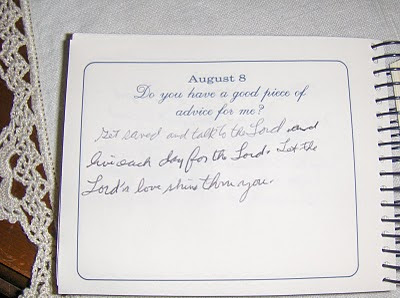 August 8
Do you have a good piece of
advice for me?
Get saved and talk to the Lord and
live each day for the Lord. Let the
Lord's love shine thru you.